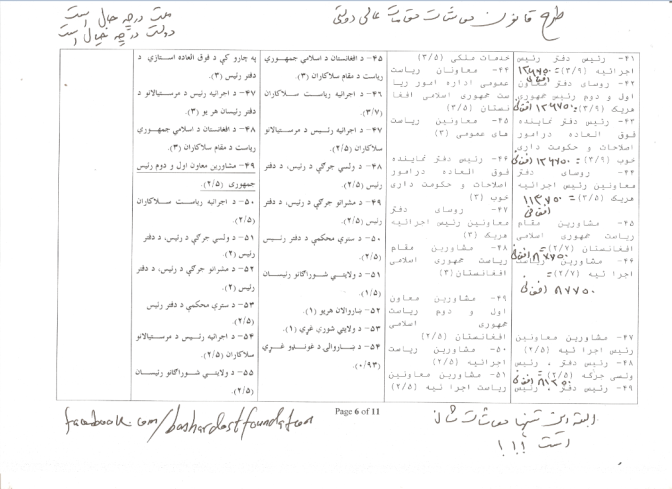 طرح قانون معاشات مقامات عالی دولتی
ملت درچه حال است
دولت درچه خیال است
۴۱- رئیس دفتر رئیس
اجرائیه (۳/۹) = ۱۳۶۷۵۰ افغانی
۴۲- روسای دفتر معاون
اول و دوم رئیس جمهوری
هریک (۳/۹) = ۱۳۶۷۵۰ افغانی
۴۳- رئیس دفتر نماینده
فوق العاده درامور
اصلاحات و حکومت داری
خوب (۳/۹) = ۱۳۶۷۵۰ افغانی
۴۴- روسای دفتر
معاونین رئیس اجرائیه
هریک (۳/۵) = ۱۱۳۷۵۰
افغانی
۴۵- مشاورین مقام
ریاست جمهوری اسلامی
افغانستان (۲/۷) = ۸۷۷۵۰ افغانی
۴۶- مشاورین ریاست
اجرائیه (۲/۷) =
۸۷۷۵۰ افغانی
۴۷- مشاورین معاونین
رئیس اجرائیه (۲/۵)
۴۸- رئیس دفتر، رئیس
ولسی جرگه (۲/۵) = ۸۱۲۵۰ افغانی
۴۹- رئیس دفتر، رئیس
خدمات ملکی (۳/۵)
۴۴- معاونان ریاست
عمومی اداره امور ریا
ست جمهوری اسلامی افغا
نستان (۳/۵)
۴۵- معاونین ریاست
های عمومی (۳)
۴۶- رئیس دفتر نماینده
فوق العاده درامور
اصلاحات و حکومت داری
خوب (۳)
۴۷- روسای دفتر
معاونین رئیس اجرائیه
هریک (۳)
۴۸- مشاورین مقام
ریاست جمهوری اسلامی
افغانستان (۳)
۴۹- مشاورین معاون
اول و دوم ریاست
جمهوری اسلامی
افغانستان (۲/۵)
۵۰- مشاورین ریاست
اجرائیه (۲/۵)
۵۱- مشاورین معاونین
ریاست اجرائیه (۲/۵)
۴۵- د افغانستان د اسلامي جمهوري
ریاست د مقام سلاکاران (۳)
۴۶- د اجرائیه ریاست سلاکاران
(۳/۷)
۴۷- د اجرائیه رئیس د مرستیالانو
سلاکاران (۲/۵)
۴۸- د ولسي جرگې د رئیس، د دفتر
رئیس (۲/۵)
۴۹- د مشرانو جرگې د رئیس، د دفتر
رئیس (۲/۵)
۵۰- د سترې محکمې د دفتر رئیس
(۲/۵)
۵۱- د ولایتي شوراگانو رئیسان
(۱/۵)
۵۲- ښاروالان هریو (۱).
۵۳- د ولایتي شورې غړي (۱).
۵۴- د ښاروالۍ د غونډیو غړي
(۰/۹۳).
په چارو کې د فوق العاده استازي د
دفتر رئیس (۳).
۴۷- د اجرائیه رئیس د مرستیالانو د
دفتر رئیسان هر یو (۳).
۴۸- د افغانستان د اسلامي جمهوري
ریاست د مقام سلاکاران (۳).
۴۹- د مشاورین معاون اول و دوم رئیس
جمهوری (۲/۵).
۵۰- د اجرائیه ریاست سلاکاران
(۲/۵).
۵۱- د ولسي جرگې د رئیس، د دفتر
رئیس (۲).
۵۲- د مشرانو جرگې د رئیس، د دفتر
رئیس (۲).
۵۳- د سترې محکمې د دفتر رئیس
(۲/۵)
۵۴- د اجرائیه رئیس د مرستیالانو
سلاکاران (۲/۵).
۵۵- د ولایتي شوراگانو رئیسان
(۲/۵).
Page 6 of 11
البته این تنها معاشات شان
است !!!
facebook.com/bashardostfoundation